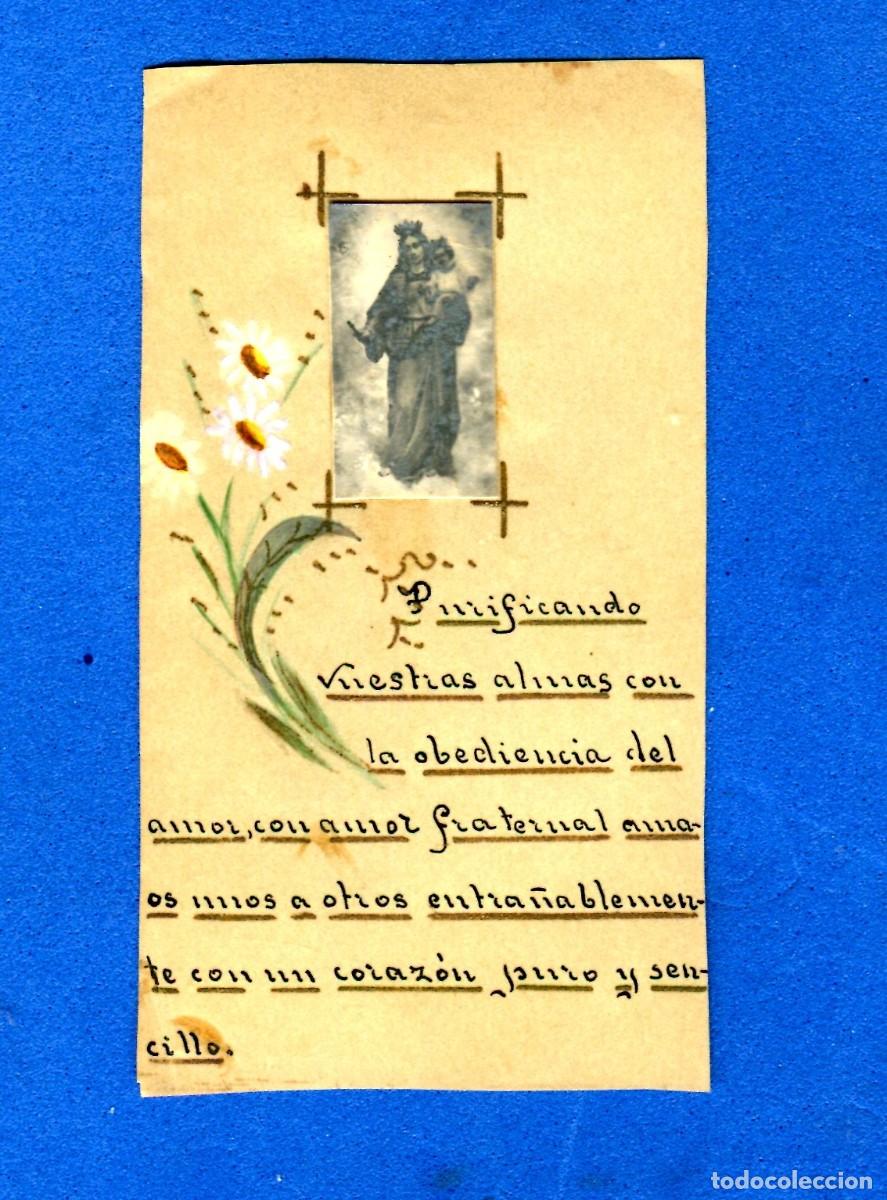 Purificando
vuestras almas con
la obediencia del
amor, con amor fraternal ama-
os unos a otros entrañablemen-
te con un corazón puro y sen-
cillo.
todocoleccion